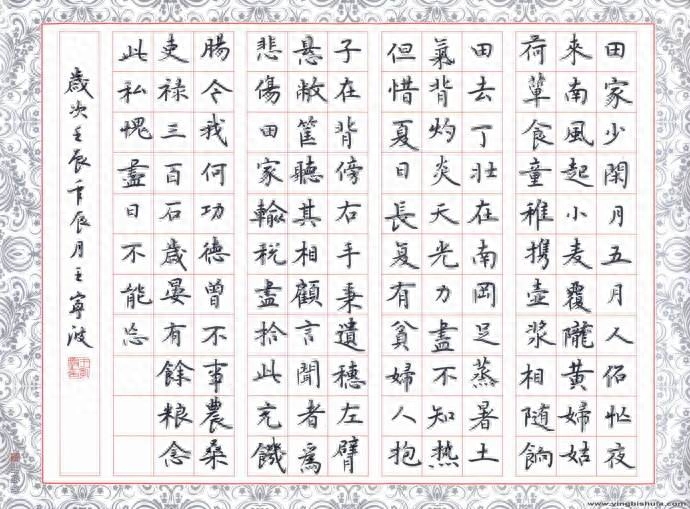 田家少閑月五月人倍忙夜
來南風起小麦覆隴黄婦姑
荷簞食童稚携壺漿相随餉
田去丁壯在南岡足蒸暑土
氣背灼炎天光力盡不知熱
但惜夏日長复有貧婦人抱
子在背傍右手秉遺穗左臂
悬敝筐聽其相顧言聞者爲
悲傷田家輸税盡拾此充饑
腸今我何功德曾不事農桑
吏禄三百石歲晏有餘粮念
此私愧盡日不能忘
歲次壬辰年辰月王寧波
www.yingbishufa.com